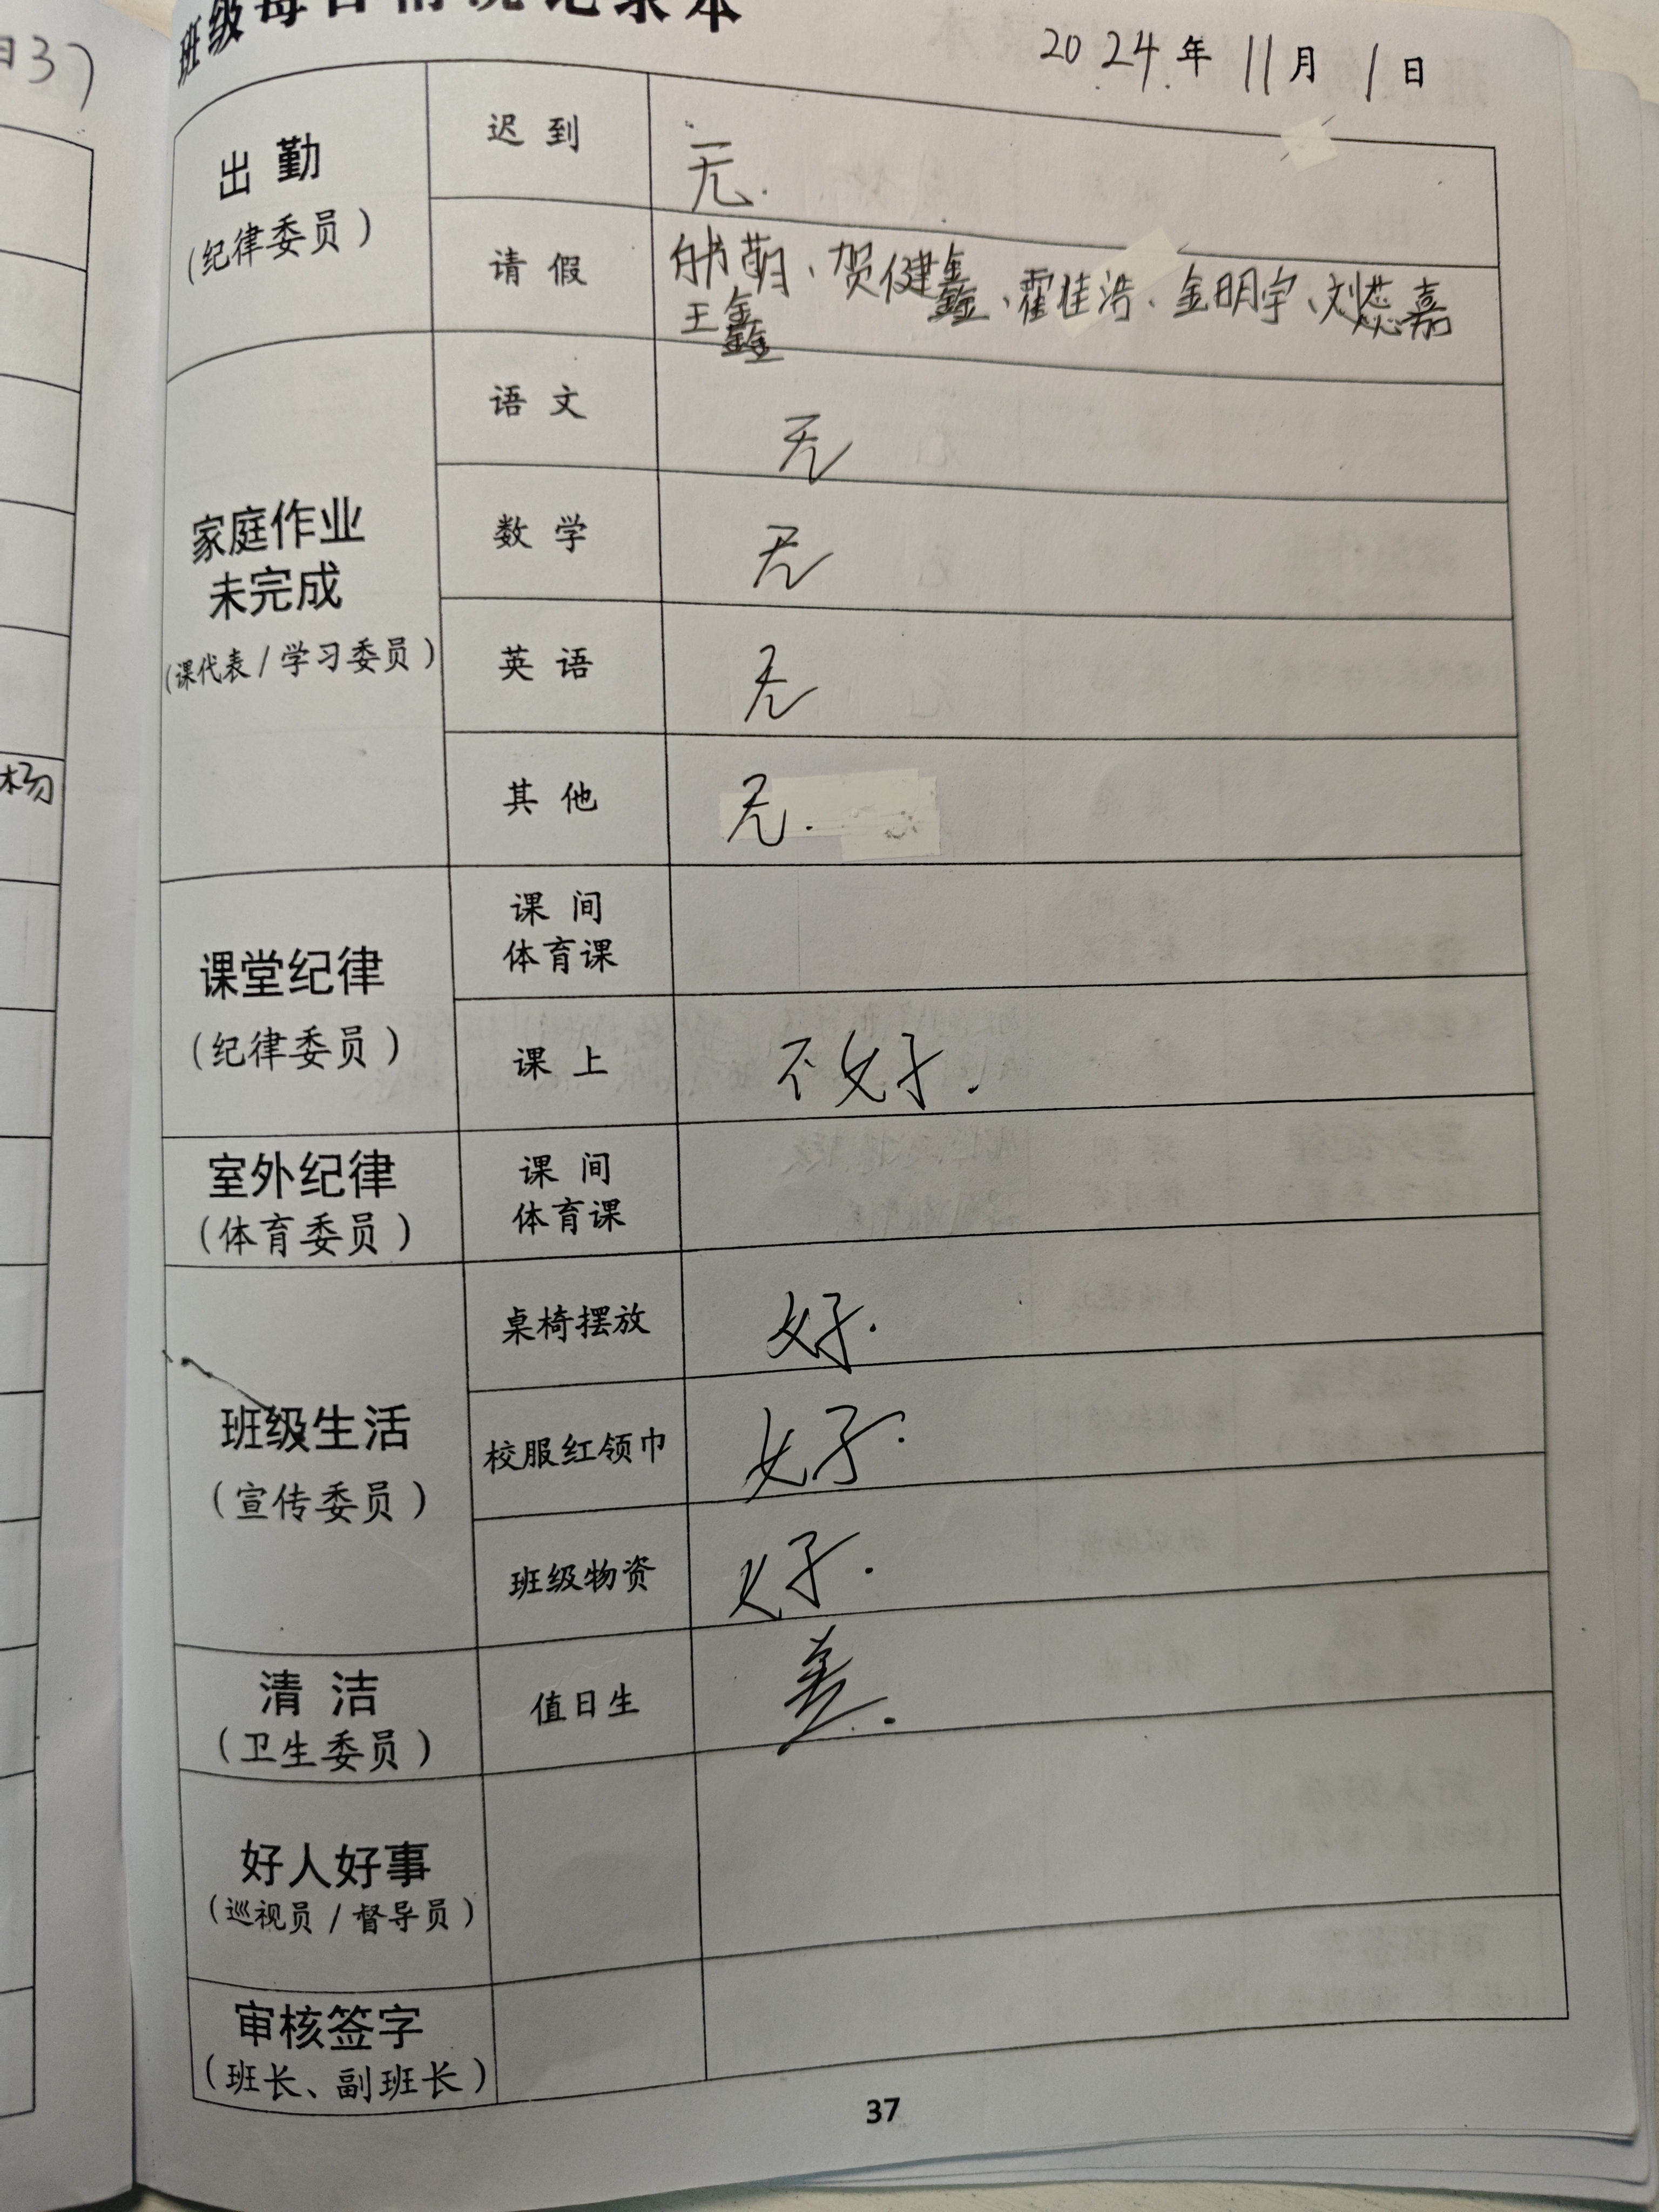 班级每日情况记录本
2024年11月1日
出勤
(纪律委员)
迟到
无.
请假
萌、贺健鑫、霍佳浩、金明宇、刘燚嘉
王鑫
家庭作业
未完成
(课代表/学习委员)
语文
无
数学
无
英语
无
其他
无.
课堂纪律
(纪律委员)
课间
体育课
课上
不好.
室外纪律
(体育委员)
课间
体育课
班级生活
(宣传委员)
桌椅摆放
好.
校服红领巾
好.
班级物资
好.
清洁
(卫生委员)
值日生
差.
好人好事
(巡视员/督导员)
审核签字
(班长、副班长)
37
日37
杨